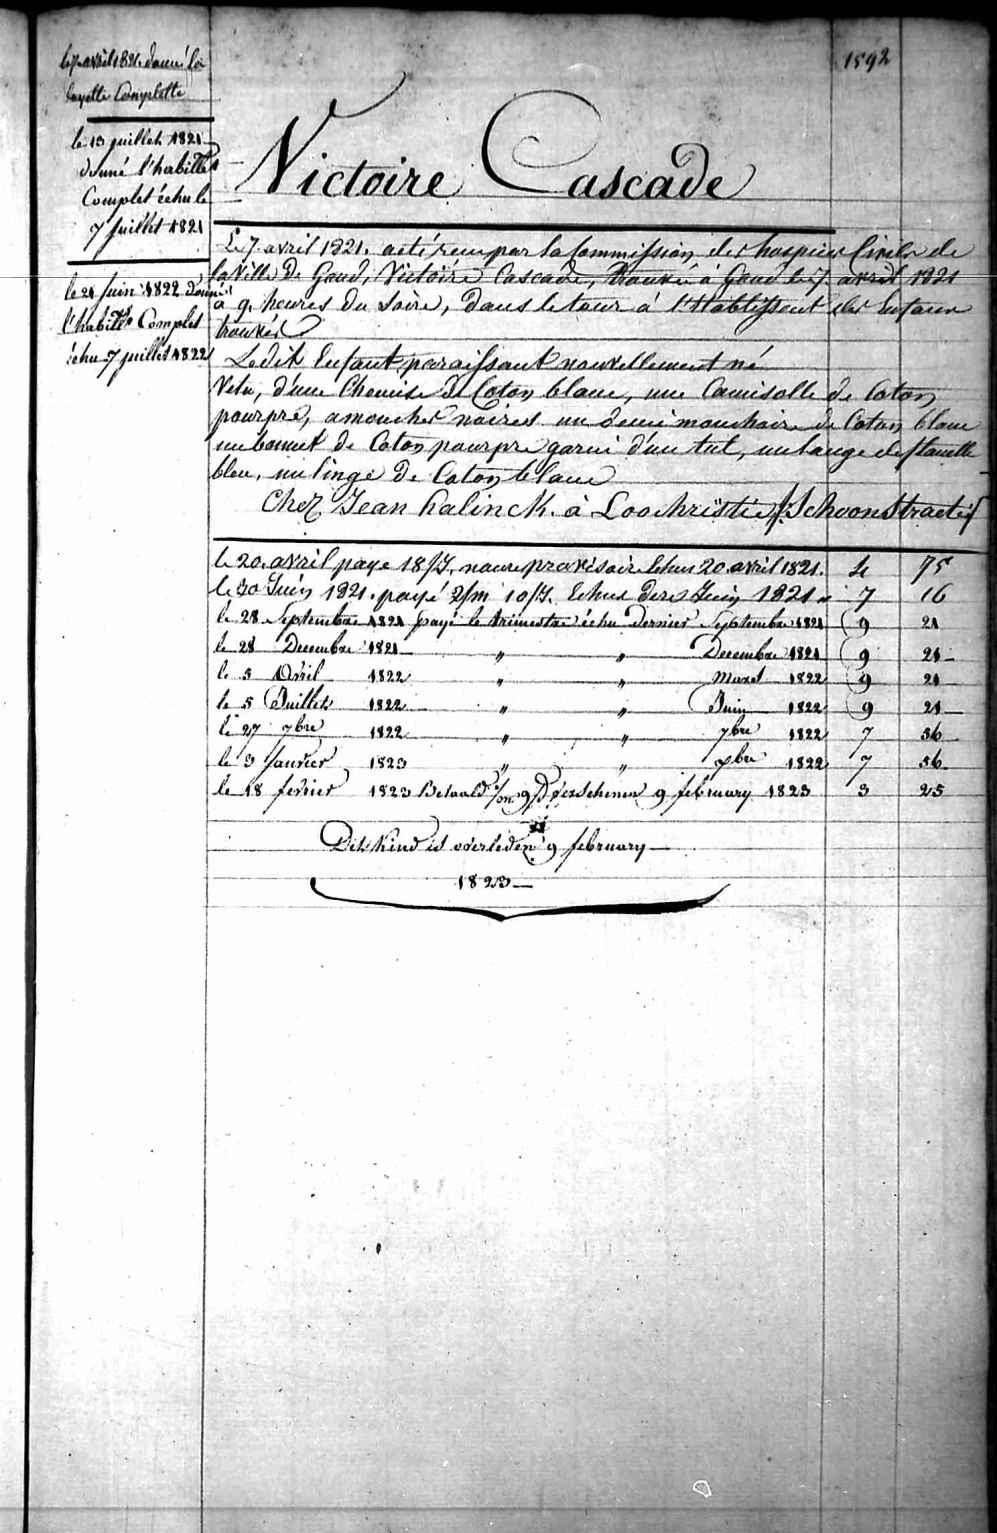 1592
le 7 avril 1821 donné la
layette Complette
le 13 juillet 1821
donné l'habillt
Complet échu le
7 juillet 1821
le 21 Juin 1822 donné
l'habillt Complet
échu 7 juillet 1822
Victoire Cascade
Le 7 avril 1821. a été reçu par la Commission des hospices Civils de
la ville de Gand, Victoire Cascade, trouvée à Gand le 7 avril 1821
à 9 heures du Soire, dans le tour à l'Etablissent des Enfans
trouvés
Ledit Enfant paraissant nouvellement né
Vetu, d'une Chemise de Coton blanc, une Camisolle de Coton
pourpre, a mouches noires un demi mouchoire de Coton blanc
un bonnet de Coton pourpre garni d'un tul, un lange de flanelle
bleu, un linge de Coton blanc
Chez Jean halinck. à Loochristie /Schoonstraete/
le 20 avril paye 18/J. nourre provisoire échus 20 avril 1821. 4 75
le 30 Juin 1821. payé 2/m 10/J. Echus ders Juin 1821 7 16
le 28 Septembre 1821 payé le trimestre échu dernier Septembre 1821 9 21
le 28 Decembre 1821 " " Decembre 1821 9 21
le 5 Avril 1822 " " Mars 1822 9 21
le 5 Juillet 1822 " " Juin 1822 9 21
le 27 7bre 1822 " " 7bre 1822 7 56
le 3 Janvier 1823 " " xbre 1822 7 56
le 18 fevrier 1823 Betaald 1/m 9/D verschenen 9 february 1823 3 25
Dit kind is overleden 9 february
1823